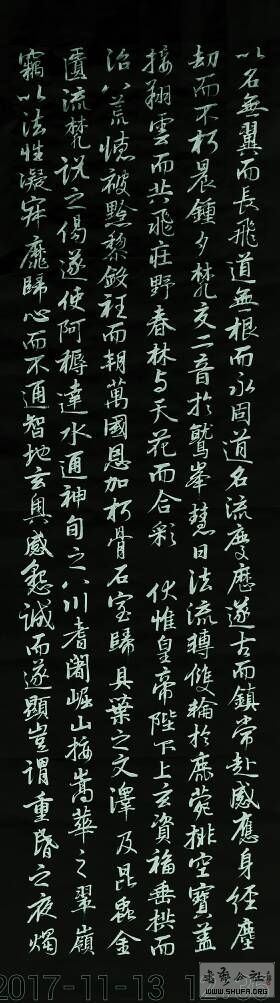 以名無翼而長飛道無根而永固道名流慶歷遂古而鎮常赴感應身經塵
劫而不朽晨鍾夕梵交二音於鷲峯慧日法流轉雙輪於鹿菀排空寶盖
接翔雲而共飛莊野春林与天花而合彩 伏惟皇帝陛下上玄資福垂拱而
治八荒德被黔黎斂衽而朝萬國恩加朽骨石室歸貝葉之文澤及昆蟲金
匱流梵說之偈遂使阿耨達水通神甸之八川耆闍崛山接嵩華之翠嶺
竊以法性凝寂靡歸心而不通智地玄奧感懇誠而遂顯豈謂重昏之夜燭
WWW.SHUFA.ORG
2017-11-13